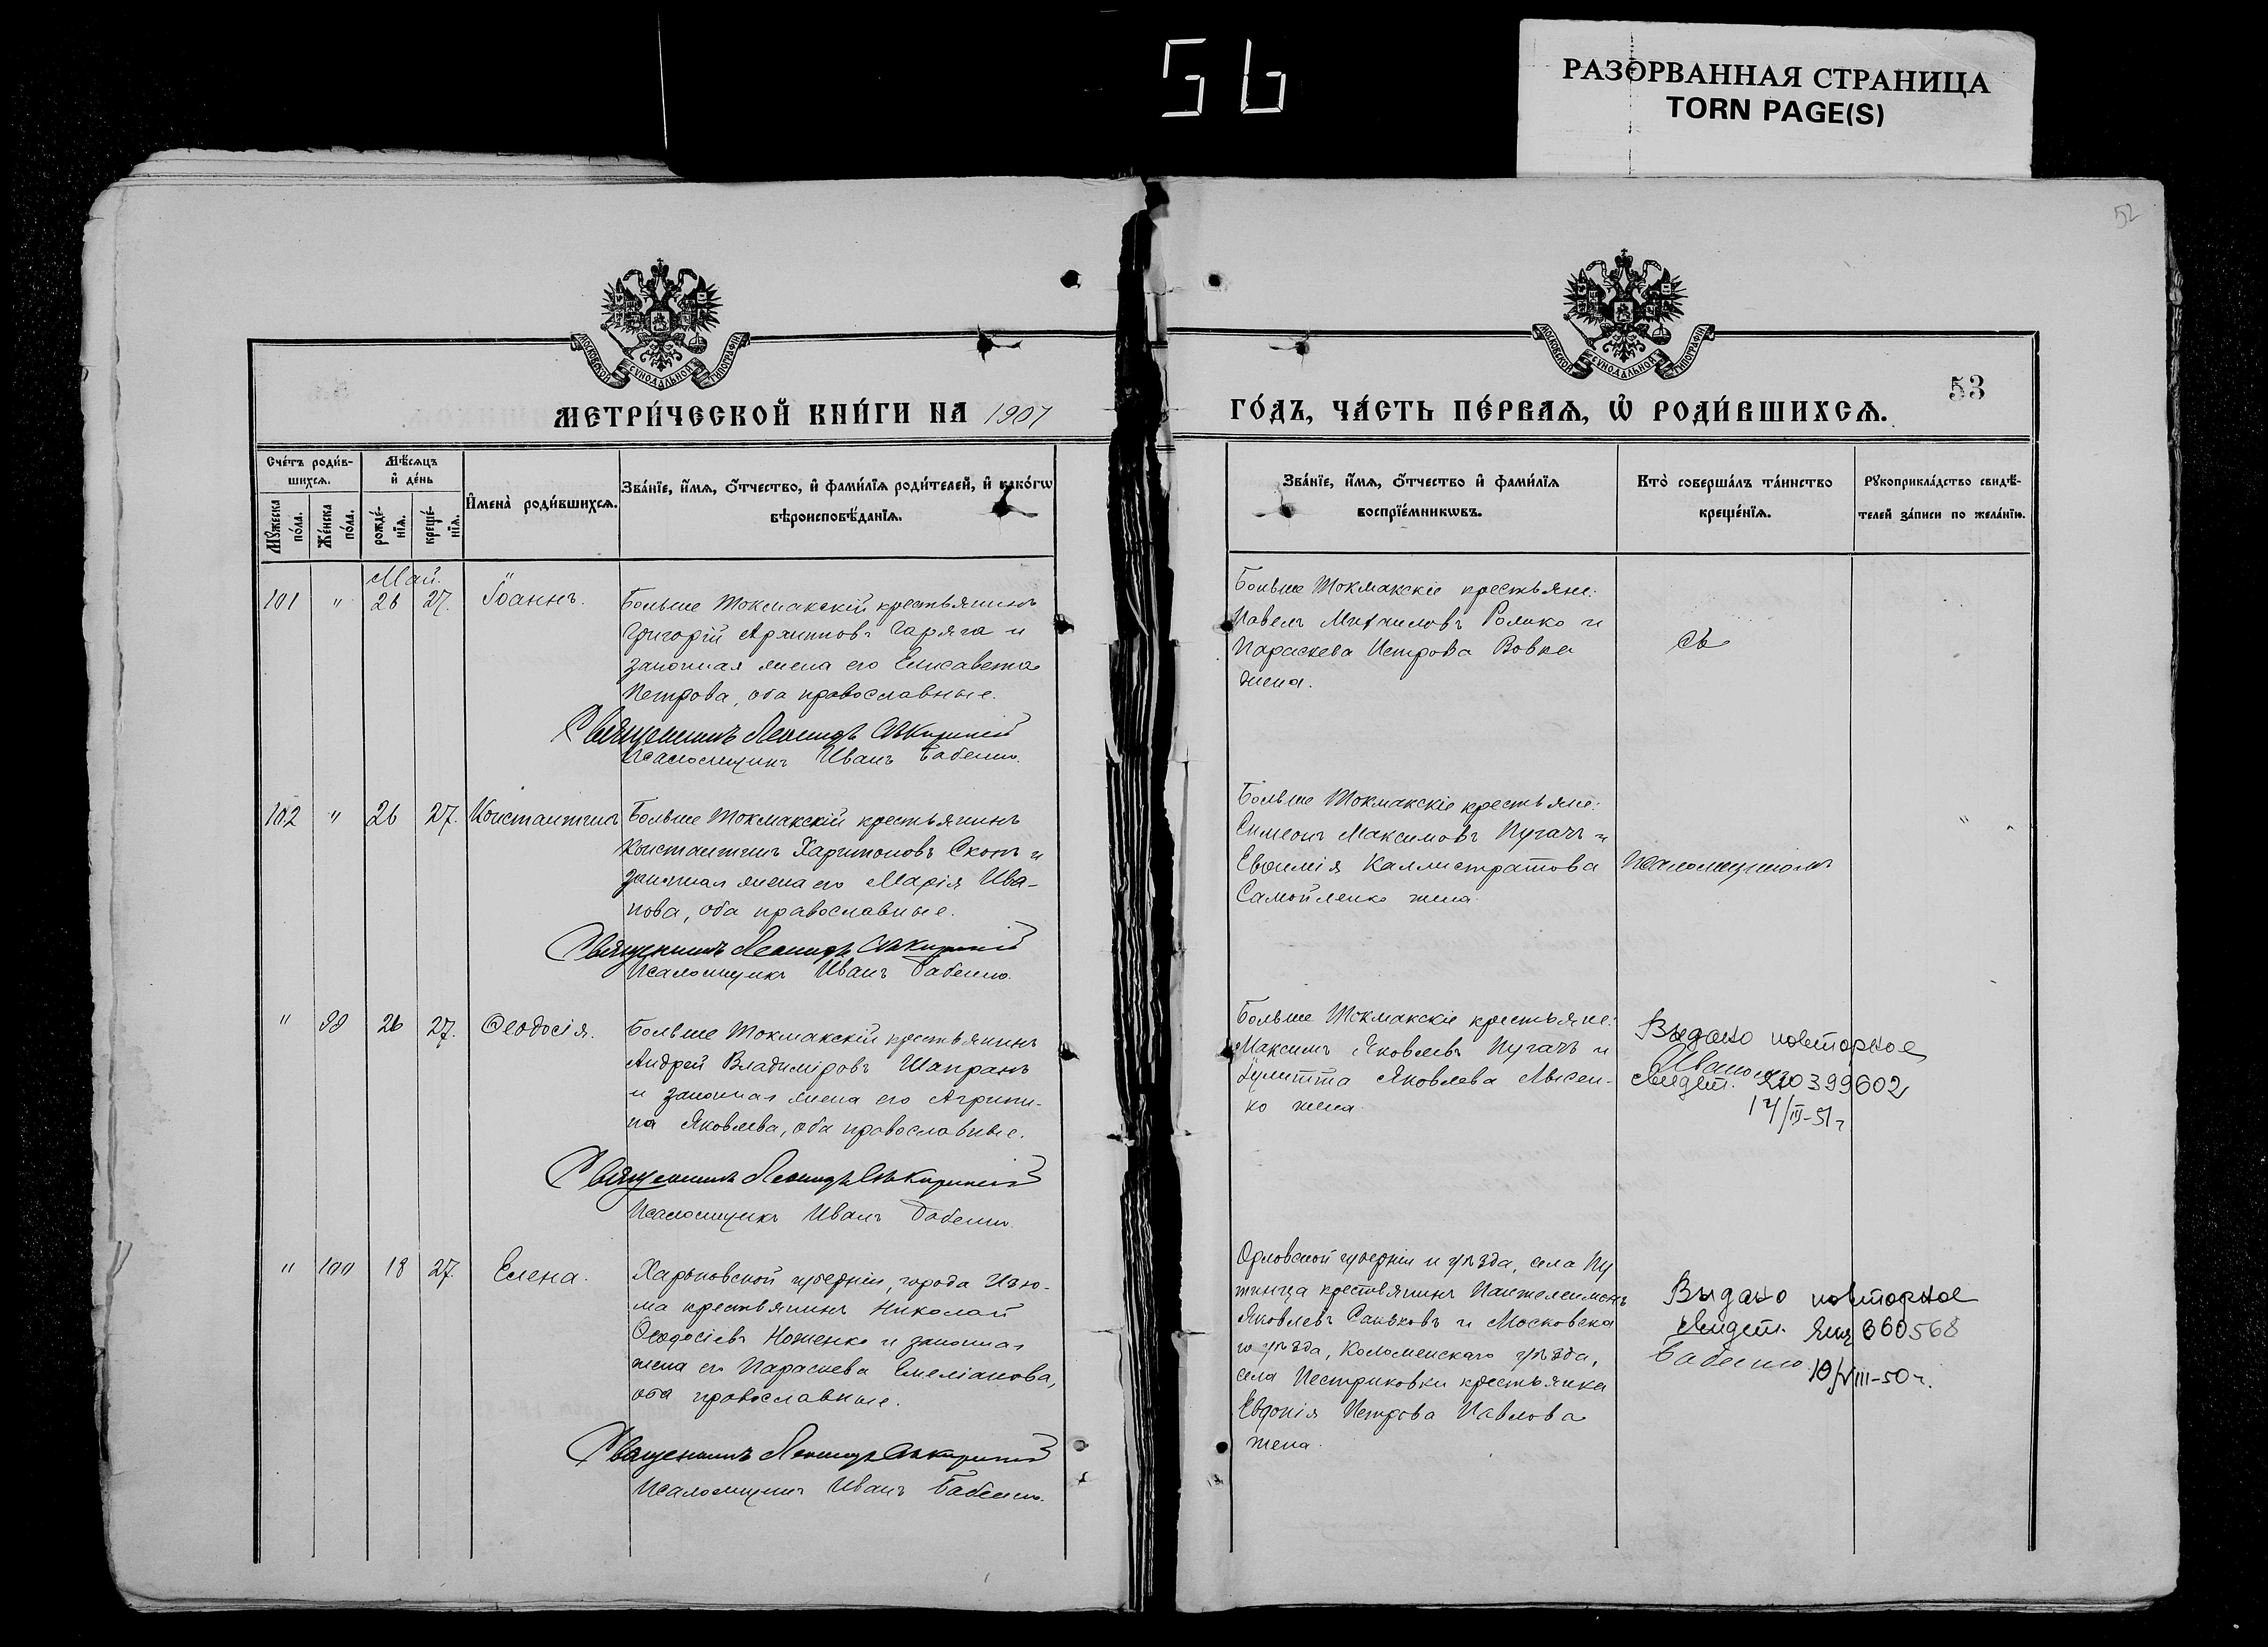 56
РАЗОРВАННАЯ СТРАНИЦА
TORN PAGE(S)
52
МОСКОВСКОЙ СУНОДАЛЬНОЙ ТИПОГРАФІИ
МОСКОВСКОЙ СУНОДАЛЬНОЙ ТИПОГРАФІИ
53
МЕТРИ́ЧЕСКОЙ КНИ́ГИ НА 1907
ГО́ДЪ, ЧА́СТЬ ПЕ́РВАѦ, Ѡ҆ РОДИ́ВШИХСѦ.
Сче́тъ роди́в-
шихсѧ.
Мꙋ́жеска по́ла.
Же́нска по́ла.
Мѣ́сѧцъ
и҆ де́нь
рожде́-
нїѧ.
креще́-
нїѧ.
И҆мена̀ роди́вшихсѧ.
Зва́нїе, и҆́мѧ, ѻ҆́тчество, и҆ фами́лїѧ роди́телей, и҆ како́гѡ
вѣроисповѣ́данїѧ.
Зва́нїе, и҆́мѧ, ѻ҆́тчество и҆ фами́лїѧ
воспрїе́мникѡвъ.
Кто̀ соверша́лъ та́инство
креще́нїѧ.
Рꙋкоприкла́дство свидѣ́-
телей за́писи по жела́нїю.
Май.
101 " 26 27. Іоаннъ.
Больше Токмакскій крестьянинъ
Григорій Архипповъ Гаряга и
законная жена его Елисавета
Петрова, оба православные.
Священникъ Леонидъ
Псаломщикъ Иванъ Бабенко.
Больше Токмакскіе крестьяне:
Павелъ Михаиловъ Ролико и
Параскева Петрова Вовка
жена.
Съ
102 " 26 27. Константинъ
Больше Токмакскій крестьянинъ
Константинъ Харитоновъ Скопъ и
законная жена его Марія Ива-
нова, оба православные.
Священникъ Леонидъ
Псаломщикъ Иванъ Бабенко.
Больше Токмакскіе крестьяне:
Симеонъ Максимовъ Пугачъ и
Евфимія Каллистратова
Самойленко жена.
Псаломщикомъ
" 99 26 27. Ѳеодосія.
Больше Токмакскій крестьянинъ
Андрей Владиміровъ Шапранъ
и законная жена его Агрипи-
на Яковлева, оба православные.
Священникъ Леонидъ
Псаломщикъ Иванъ Бабенко.
Больше Токмакскіе крестьяне:
Максимъ Яковлевъ Пугачъ и
Іулитта Яковлева Лысен-
ко жена.
Выдано повторное
Иваномъ
свидет. 399602
14/III-51г
" 100 18 27. Елена.
Харьковской губерніи, города Изю-
ма крестьянинъ Николай
Ѳеодосіевъ Ноженко и законная
жена его Параскева Емеліанова,
оба православные.
Священникъ Леонидъ
Псаломщикъ Иванъ Бабенко.
Орловской губерніи и уѣзда, села Пу
тинца крестьянинъ Пантелеимонъ
Яковлевъ Саньковъ и Московска
го уѣзда, Коломенскаго уѣзда,
села Пестриковки крестьянка
Евдокія Петрова Павлова
жена.
Выдано повторное
свидет. 360568
Бабенко.
10/VIII-50г.